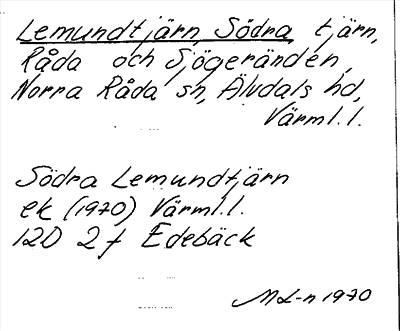 Lemundtjärn, Södra tjärn,
Råda och Sjögeränden,
Norra Råda sn, Älvdals hd,
Värml. l.
Södra Lemundtjärn
ek (1970) Värml. l.
12D 2f Edebäck
ML-n 1970